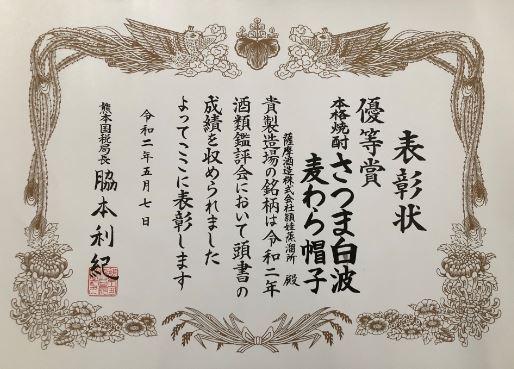 表彰状
優等賞
本格焼酎 さつま白波
麦わら帽子
薩摩酒造株式会社頴娃蒸溜所 殿
貴製造場の銘柄は令和二年
酒類鑑評会において頭書の
成績を収められました
よってここに表彰します
令和二年五月七日
熊本国税局長 脇本利紀